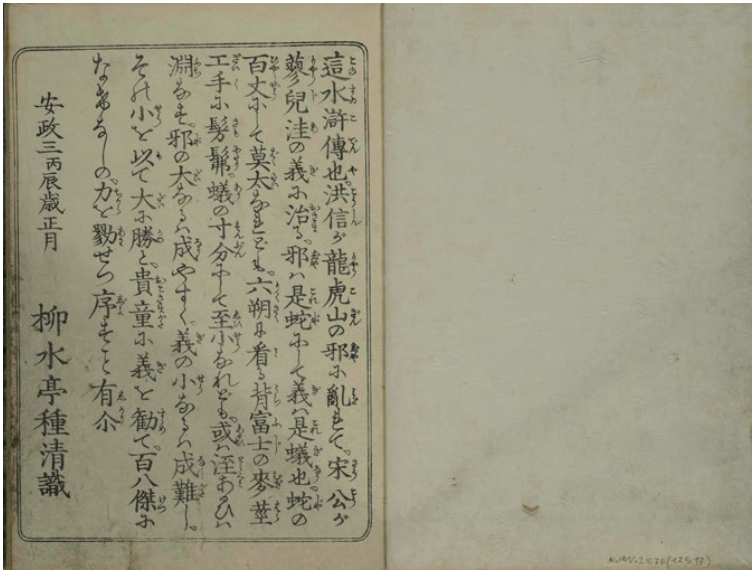 這水滸傳也。洪信が龍虎山の邪に亂れて。宋公が
蓼兒洼の義に治る。邪ハ是蛇にして義ハ是蟻也。蛇の
百丈にして莫太なれども。六朔に看る背富士の麥莖
工手に髣髴。蟻の寸分にして至小なれども。或ハ垤あるひハ
淵なす。邪の大なるハ成やすく。義の小なるハ成難し。
その小を以て大に勝と。貴童に義を勧て。百八傑に
なきなしの。力を勠せつ序すこと有尒
安政三丙辰歳正月
柳水亭種清識